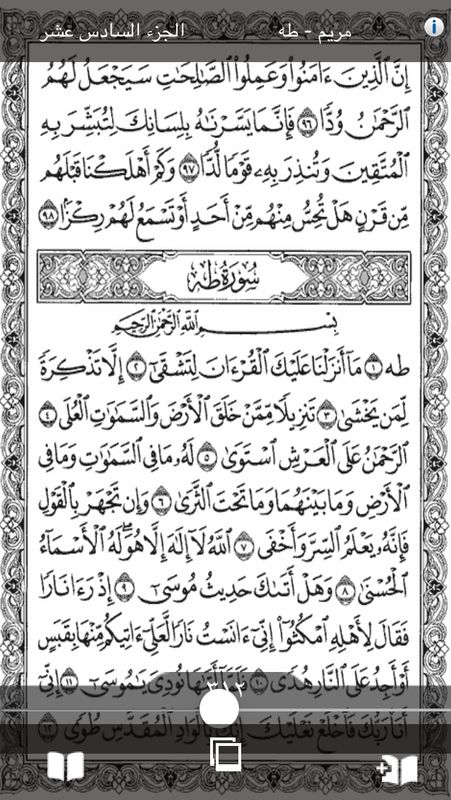 مريم - طه الجزء السادس عشر
إِنَّ ٱلَّذِينَ ءَامَنُوا۟ وَعَمِلُوا۟ ٱلصَّـٰلِحَـٰتِ سَيَجْعَلُ لَهُمُ
ٱلرَّحْمَـٰنُ وُدًّا ٩٦ فَإِنَّمَا يَسَّرْنَـٰهُ بِلِسَانِكَ لِتُبَشِّرَ بِهِ
ٱلْمُتَّقِينَ وَتُنذِرَ بِهِۦ قَوْمًا لُّدًّا ٩٧ وَكَمْ أَهْلَكْنَا قَبْلَهُم
مِّن قَرْنٍ هَلْ تُحِسُّ مِنْهُم مِّنْ أَحَدٍ أَوْ تَسْمَعُ لَهُمْ رِكْزًۢا ٩٨
سُورَةُ طه
بِسْمِ ٱللَّهِ ٱلرَّحْمَـٰنِ ٱلرَّحِيمِ
طه ١ مَآ أَنزَلْنَا عَلَيْكَ ٱلْقُرْءَانَ لِتَشْقَىٰٓ ٢ إِلَّا تَذْكِرَةً
لِّمَن يَخْشَىٰ ٣ تَنزِيلًا مِّمَّنْ خَلَقَ ٱلْأَرْضَ وَٱلسَّمَـٰوَٰتِ ٱلْعُلَى ٤
ٱلرَّحْمَـٰنُ عَلَى ٱلْعَرْشِ ٱسْتَوَىٰ ٥ لَهُۥ مَا فِى ٱلسَّمَـٰوَٰتِ وَمَا فِى
ٱلْأَرْضِ وَمَا بَيْنَهُمَا وَمَا تَحْتَ ٱلثَّرَىٰ ٦ وَإِن تَجْهَرْ بِٱلْقَوْلِ
فَإِنَّهُۥ يَعْلَمُ ٱلسِّرَّ وَأَخْفَى ٧ ٱللَّهُ لَآ إِلَـٰهَ إِلَّا هُوَ لَهُ ٱلْأَسْمَآءُ
ٱلْحُسْنَىٰ ٨ وَهَلْ أَتَىٰكَ حَدِيثُ مُوسَىٰٓ ٩ إِذْ رَءَا نَارًا
فَقَالَ لِأَهْلِهِ ٱمْكُثُوٓا۟ إِنِّىٓ ءَانَسْتُ نَارًا لَّعَلِّىٓ ءَاتِيكُم مِّنْهَا بِقَبَسٍ
أَوْ أَجِدُ عَلَى ٱلنَّارِ هُدًى ١٠ فَلَمَّآ أَتَىٰهَا نُودِىَ يَـٰمُوسَىٰٓ ١١ إِنِّىٓ
٣١٢
أَنَا۠ رَبُّكَ فَٱخْلَعْ نَعْلَيْكَ إِنَّكَ بِٱلْوَادِ ٱلْمُقَدَّسِ طُوًى ١٢